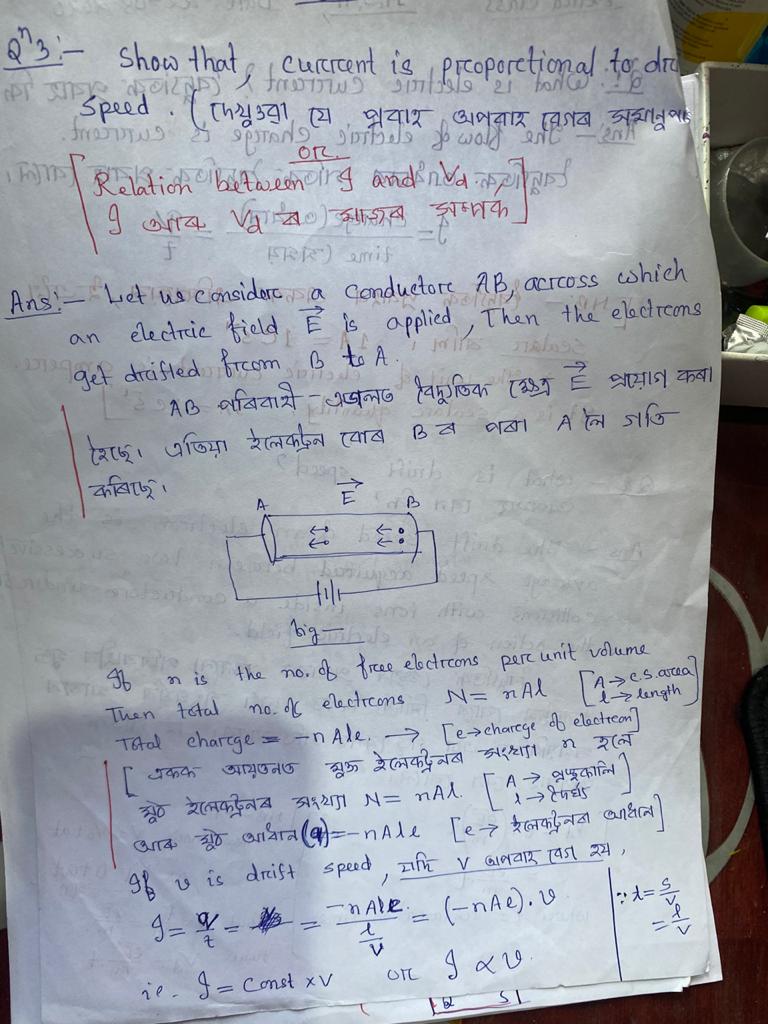 Qⁿ3:- Show that, current is proportional to
speed. (দেখুওৱা যে প্ৰবাহ অপবাহ বেগৰ সমানুপা
or
[Relation between I and Vd.,
I আৰু Vd ৰ মাজৰ সম্পৰ্ক]
Ans:- Let us consider a conductor AB, across which
an electric field E⃗ is applied, Then the electrons
get drifted from B to A.
AB পৰিবাহী এডালত বৈদ্যুতিক ক্ষেত্ৰ E⃗ প্ৰয়োগ কৰা
হৈছে। এতিয়া ইলেকট্ৰন বোৰ B ৰ পৰা A লৈ গতি
কৰিছে।
E⃗
A B
fig—
If n is the no. of free electrons per unit volume
Then total no. of electrons N = nAl [A → c.s. area
l → length]
Total charge = -nAle. → [e → charge of electron]
[একক আয়তনত মুক্ত ইলেকট্ৰনৰ সংখ্যা n হলে
মুঠ ইলেকট্ৰনৰ সংখ্যা N = nAl. [A → প্ৰস্থকালি
l → দৈৰ্ঘ্য]
আৰু মুঠ আধান (q) = -nAle [e → ইলেকট্ৰনৰ আধান]
If v is drift speed, যদি v অপবাহ বেগ হয়,
I = q/t = = -nAle/(l/v) = (-nAe).v
∵ t = s/v
= l/v
ie. I = const × v or I ∝ v.